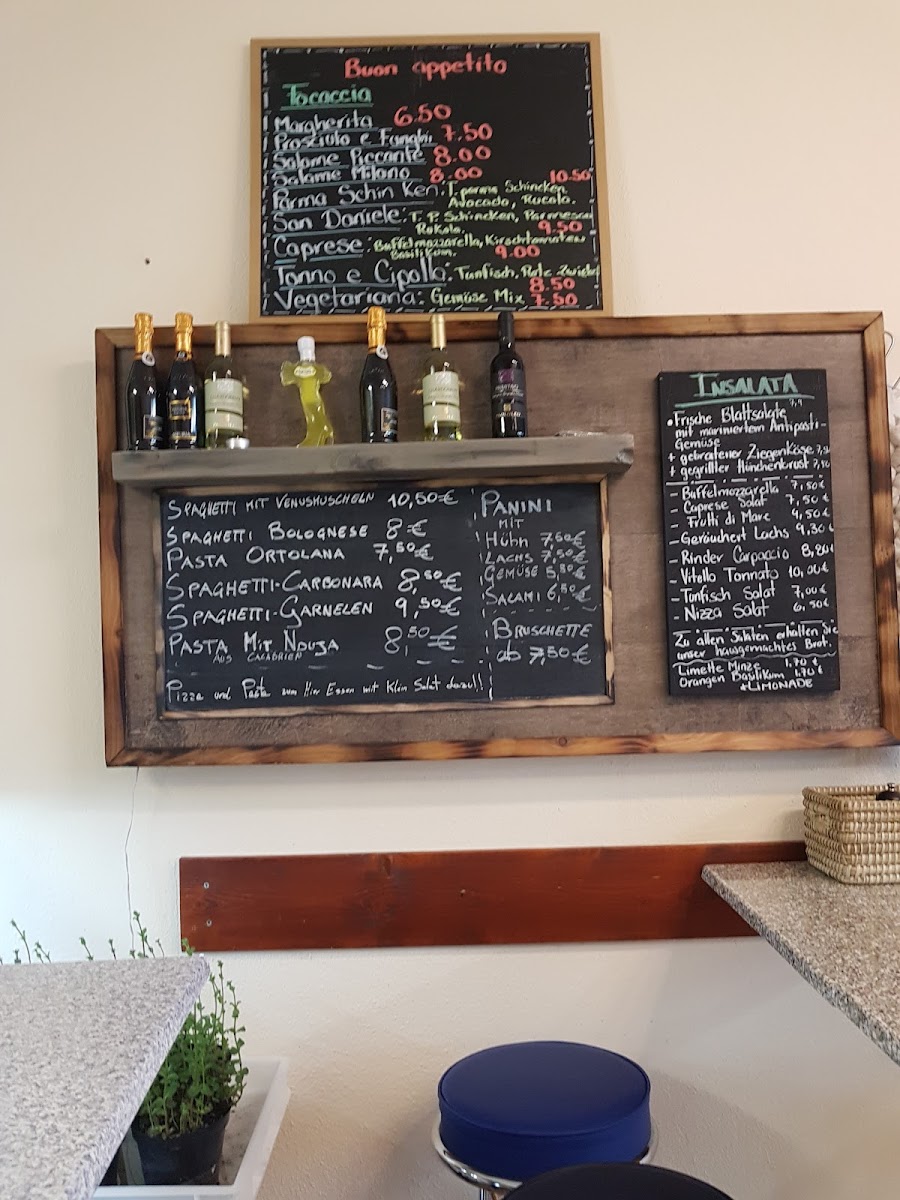 Buon appetito
Focaccia
Margherita 6.50
Prosciuto e Funghi 7.50
Salame Piccante 8.00
Salame Milano 8.00
10.50
Parma Schinken: T. parma Schincken,
Avocado, Rucola.
San Daniele: T. P. Schincken, Parmesan
Rukola. 9.50
Caprese: Buffelmozzarella, Kirschtomaten
Basilikum. 9.00
Tonno e Cipolla: Tunfisch, Rote Zwiebel
8.50
Vegetariana: Gemüse Mix 7.50
SPAGHETTI MIT VENUSMUSCHELN 10,50€
SPAGHETTI BOLOGNESE 8€
PASTA ORTOLANA 7,50€
SPAGHETTI-CARBONARA 8,50€
SPAGHETTI-GARNELEN 9,50€
PASTA MIT NDUJA 8,50€
AUS CALABRIEN
Pizza und Pasta zum Hier Essen mit Klein Salat dazu!!
PANINI
MIT
HÜHN 7,50€
LACHS 7,50€
GEMÜSE 5,80€
SALAMI 6,50€
BRUSCHETTE
ab 7,50€
INSALATA
• Frische Blattsalate 7,9
mit mariniertem Antipasti-
Gemüse
+ gebratener Ziegenkäse
+ gegrillter Hünchenbrust 7,50
- Buffelmozzarella 7,50€
- Caprese Salat 7,50€
- Frutti di Mare 4,50€
- Geräuchert Lachs 9,30€
- Rinder Carpaccio 8,20€
- Vitello Tonnato 10,00€
- Tunfisch Salat 7,00€
- Nizza Salat 6,50€
Zu allen Salaten erhalten Sie
unser hausgemachtes Brot.
Limette Minze 1.70 €
Orangen Basilikum 1.70 €
*LIMONADE